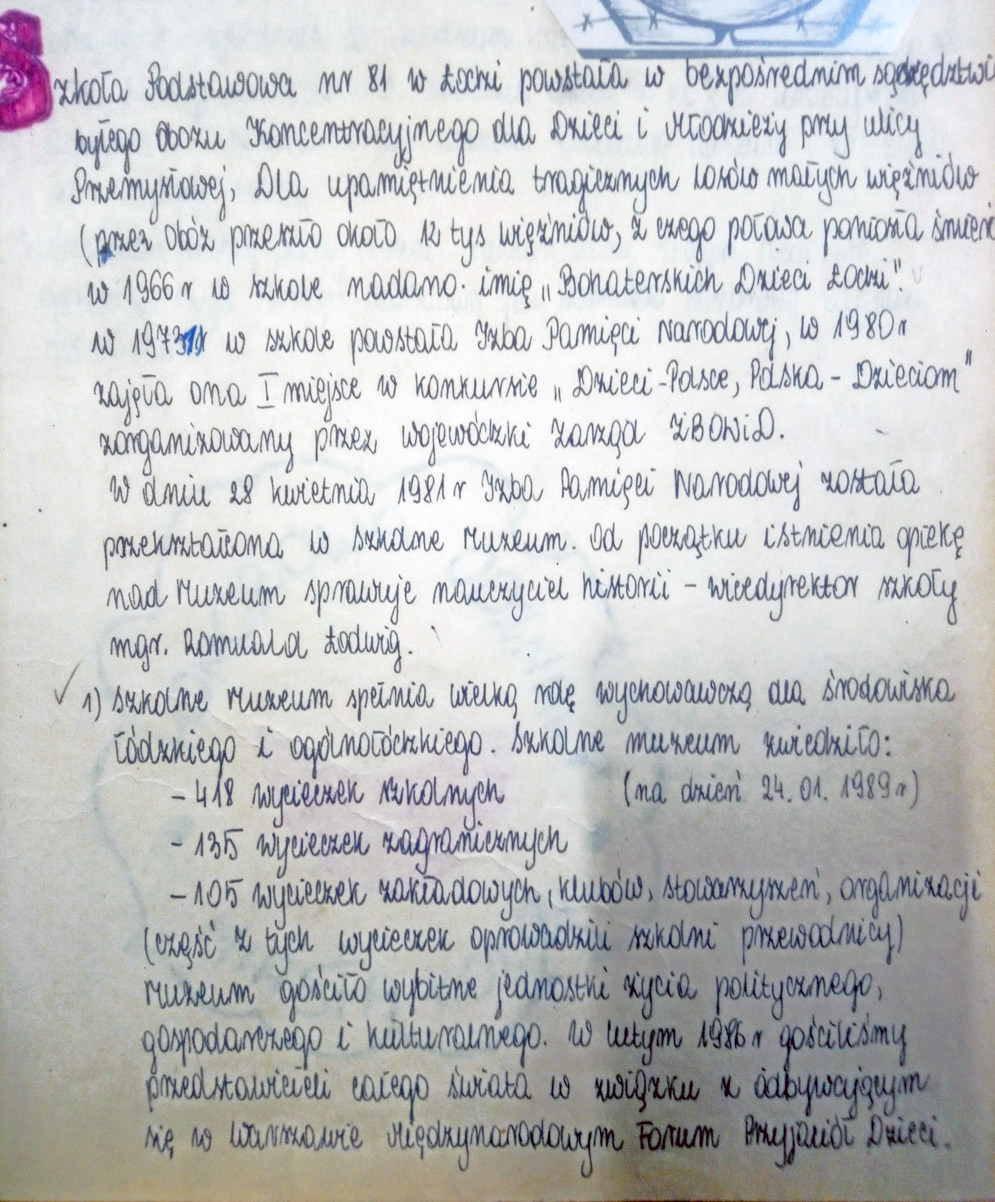 Szkoła Podstawowa nr 81 w Łodzi powstała w bezpośrednim sąsiedztwie
byłego obozu Koncentracyjnego dla Dzieci i Młodzieży przy ulicy
Przemysłowej, Dla upamiętnienia tragicznych losów małych więźniów
(przez obóz przeszło około 12 tys więźniów, z czego połowa poniosła śmierć
w 1966 r w szkole nadano imię „Bohaterskich Dzieci Łodzi".
w 1973 r w szkole powstała Izba Pamięci Narodowej, w 1980 r
zajęła ona I miejsce w konkursie „Dzieci-Polsce, Polska-Dzieciom"
zorganizowany przez wojewódzki zarząd ZBOWiD.
W dniu 28 kwietnia 1981 r Izba Pamięci Narodowej została
przekształcona w szkolne Muzeum. Od początku istnienia opiekę
nad Muzeum sprawuje nauczyciel historii – wicedyrektor szkoły
mgr. Romuald Łodwig.
1) Szkolne Muzeum spełnia wielką rolę wychowawczą dla środowiska
łódzkiego i ogólnołódzkiego. Szkolne muzeum zwiedziło:
- 418 wycieczek szkolnych (na dzień 24.01.1989 r)
- 135 wycieczek zagranicznych
- 105 wycieczek zakładowych, klubów, stowarzyszeń, organizacji
(część z tych wycieczek oprowadzili szkolni przewodnicy)
Muzeum gościło wybitne jednostki życia politycznego,
gospodarczego i kulturalnego. W lutym 1986 r gościliśmy
przedstawicieli całego świata w związku z odbywającym
się w Warszawie Międzynarodowym Forum Przyjaciół Dzieci.